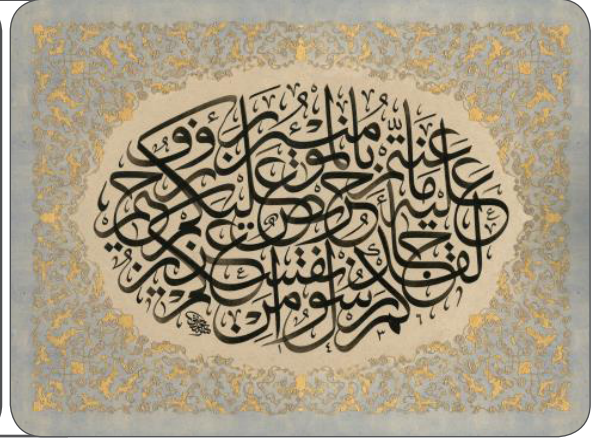 لقد جاءكم رسول من أنفسكم عزيز
عليه ما عنتم حريص عليكم
بالمؤمنين رءوف رحيم